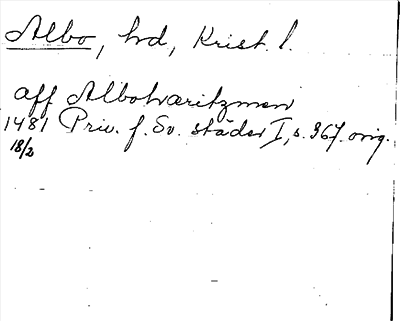 Albo, hd, Krist. l.
aff Albohæritzmen
1481 Priv. f. Sv. städer I, s. 367. orig.
18/2